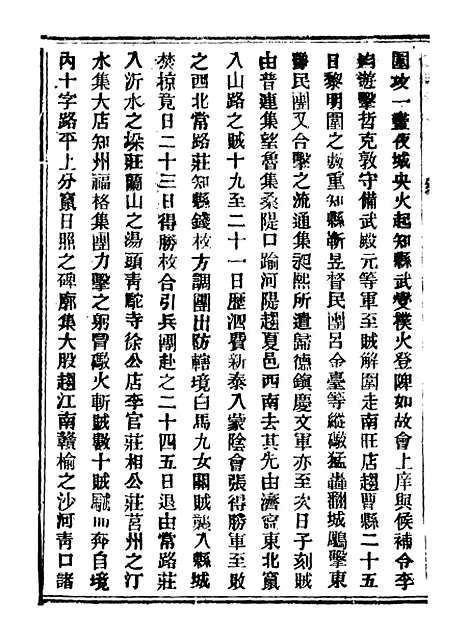 圍攻一晝夜城央火起知縣武燮撲火登陴如故會上庠與候補令李
均遊擊哲克敦守備武殿元等軍至賊解圍走南旺店趨曹縣二十五
日黎明圍之數重知縣靳昱督民團呂金臺等縱礮猛轟翻城鵰擊東
民團又合擊之流通集昶熙所遣歸德鎮慶文軍亦至次日子刻賊
由普連集望魯集桑隄口踰河隄趨夏邑西南去其先由濟甯東北竄
入山路之賊十九至二十一日歷泗費新泰入蒙陰會張得勝軍至敗
之西北常路莊知縣錢枚方調團出防轄境白馬九女關賊襲入縣城
焚掠竟日二十三日得勝枚合引兵團赴之二十四五日退由常路莊
入沂水之垛莊蘭山之湯頭靑駝寺徐公店李官莊相公莊莒州之汀
水集大店知州福格集團力擊之躬冒礮火斬賊數十賊駴而奔自境
內十字路平上分竄日照之碑廓集大股趨江南贛榆之沙河靑口諸